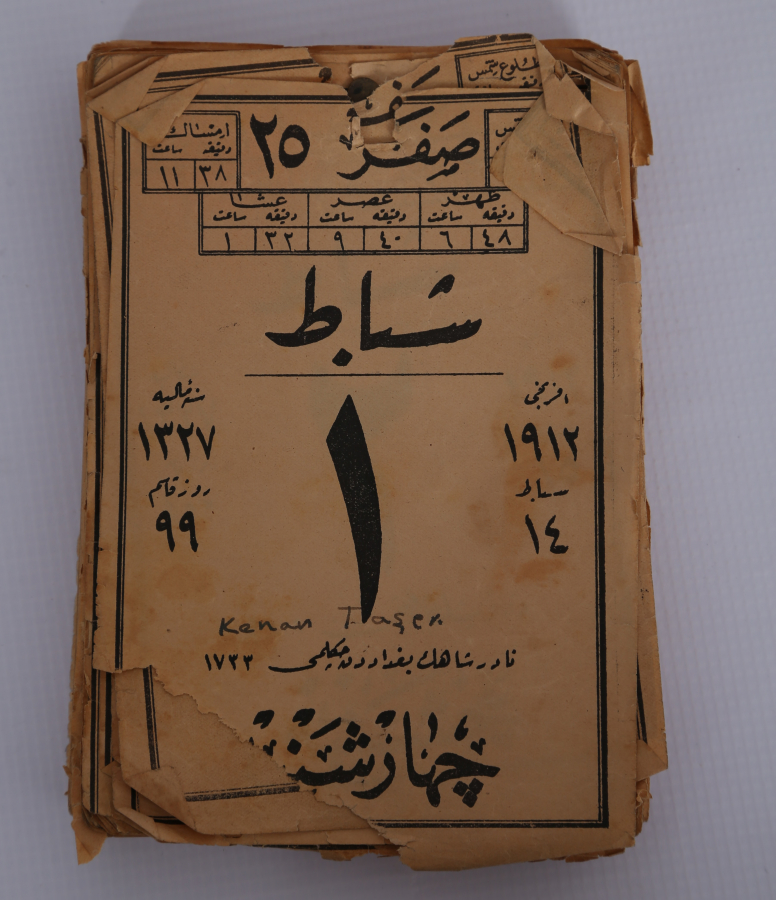 طلوع شمس
صفر ٢٥
امساك
دقيقه ساعت
٣٨ ١١
ظهر عصر عشا
دقيقه ساعت دقيقه ساعت دقيقه ساعت
٤٨ ٦ ٤٠ ٩ ٣٢ ١
شباط
افرنجى
١٩١٢
شباط
١٤
١
سنۀ ماليه
١٣٢٧
روز قاسم
٩٩
Kenan Taşer
نادر شاهك بغداددن چكلمسى ١٧٣٣
چهارشنبه